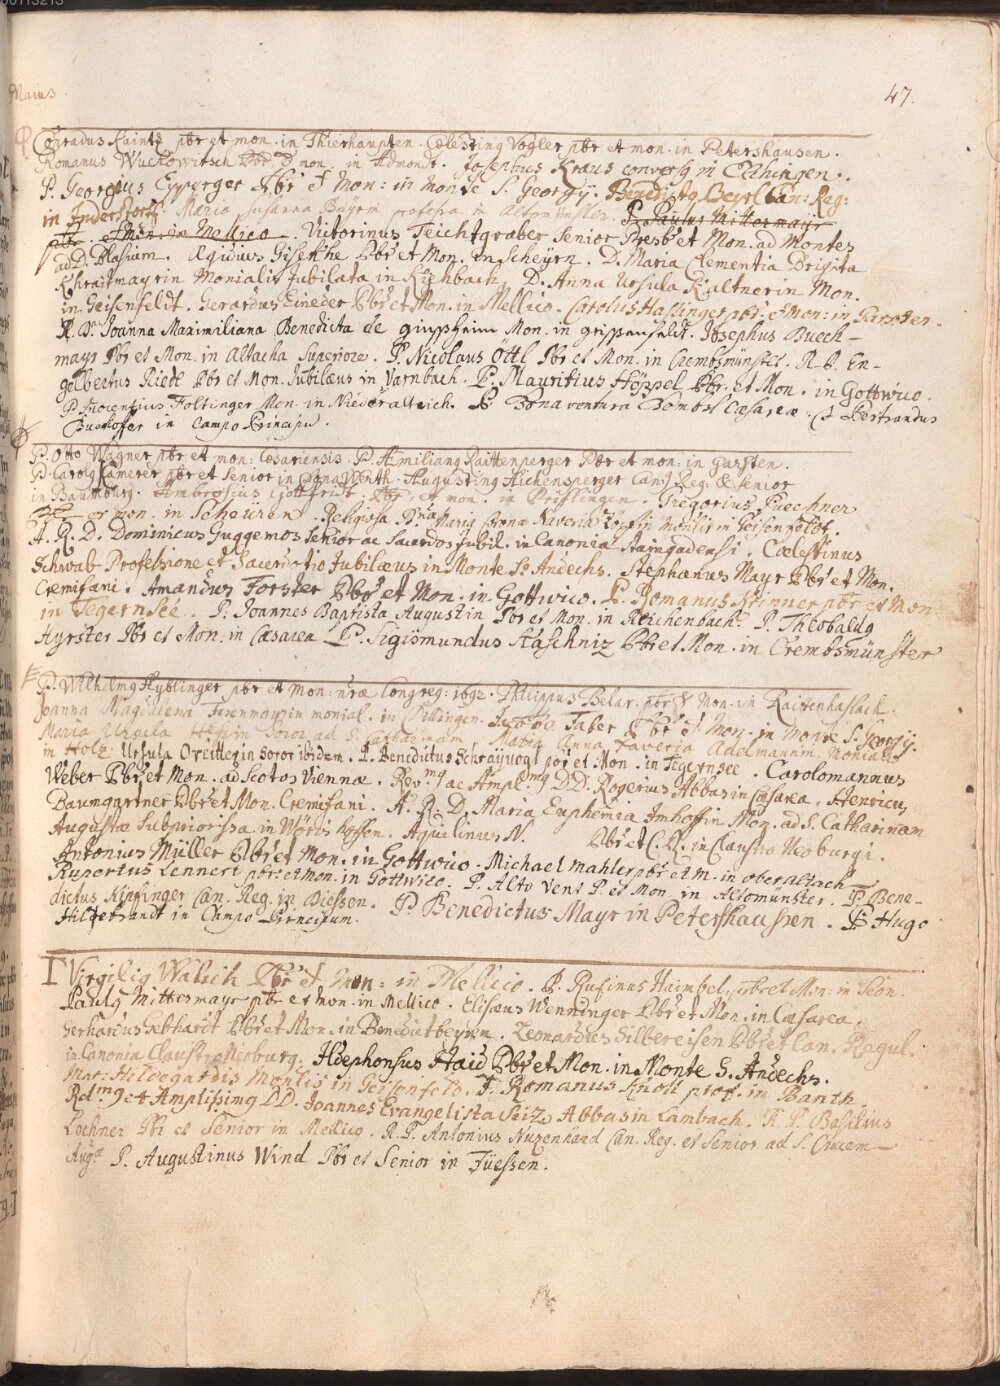 Maius
47.
Conradus Kaintz pbr et mon. in Thierhaupten. Cælesting Vogler pbr et mon. in Petershausen.
Romanus Wuckowitsch Pbr et mon. in Admondt. Josephus Kraus convers9 in Elchingen.
P. Georgius Eypperger Pbr et Mon: in Monte S. Georgij. Benedict9 Beyrl Can: Reg:
in Inderstorff. Maria Susanna Bayrin professa in Altomünster. P. Paulus Mittermayr
pbr. et Mon: in Mellico. Victorinus Teichtgraber Senior Presb et Mon. ad Montes
ad D. Blasium. Ægidius Gisekhe Pbr et Mon. in Scheyrn. D. Maria Clementia Brigita
Khraitmayrin Monialis Jubilata in Kuehbach, D. Anna Ursula Kaltnerin Mon.
in Geisenfeldt. Gerardus Eineder Pbr et Mon. in Mellico. Carolus Haslinger pbr. et Mon: in Garsten.
R. D. Joanna Maximiliana Benedicta de ginsheim Mon. in geissenfeldt. Josephus Buech-
mayr Pbr et Mon. in Altacha Superiore. P. Nicolaus Öttl Pbr et Mon. in Crembsmünster. R. P. En-
gelbertus Riede Pbr et Mon. Jubilæus in Varnbach. P. Mauritius Höppel Pbr. et Mon. in Gottwico.
P. Innocentius Foltinger Mon. in Niederalteich. P. Bonaventura Bombsl Cæsareæ. P. Bertrandus
Buechoffer in Campo Principu.
P. Otto Wagner pbr et mon: Cæsariensis. P. Æmilian9 Raittenperger Pbr et mon: in Garsten.
P. Carol9 Kamerer pbr et Senior in Dona Werth. Augustin9 Aichensperger Can9 Reg: & Senior
in Baumburg. Ambrosius Gottfridt Pbr et mon. in Prifflingen. Gregorius Puechner
Pbr et mon. in Scheüren. Religiosa Dna Maria Anna Xaveria in Monlis in Geisenfeldt.
A. R. D. Dominicus Guggemos Senior ac Sacerdos Jubil. in Canonia Staingadensi. Cælestinus
Schwab Professione et Sacerdotio Jubilæus in Monte So Andechs. Stephanus Mayr Pbr et Mon.
Cremifani. Amandus Forster Pbr et Mon. in Gottwico. P. Romanus Krinner pbr et Mon.
in Tegernsee. P. Joannes Baptista Augustin Pbr et Mon. in Reichenbach. P. Theobald9
Ayrster Pbr et Mon. in Cæsarea. P. Sigismundus Staschniz Pbr et Mon. in Crembsmünster
P. Wilhelm9 Hyblinger pbr et mon: nræ Congreg: 1692. Philippus Belar pbr & Mon. in Raitenhaslach.
Joanna Magdalena Ferenmayrin monial. in Dillingen. Jacob9 Faber Pbr et Mon. in Monte S. Georgij.
Maria Ursula Soror ad S. Catharinam. Maria Anna Xaveria Adelmannin Monialis
in Holz. Ursula Oreittlegin Soror ibidem. P. Benedictus Schraijvogl pbr et Mon. in Tegernsee. Carolomannus
Weber Pbr et Mon. ad Scotos Viennæ. Revm9 ac Amplm9 DD. Rogerius Abbas in Cæsarea. Henricus
Baumgartner Pbr et Mon. Cremifani. A. R. D. Maria Euphemia Imhoffin Mon. ad S. Catharinam
Augustæ Subpriorissa. in Wörishoffen. Aquilinus N. Pbr et C. R. in Claustro Neoburgi.
Antonius Müller Pbr et Mon. in Gottwico. Michael mahler pbr et M. in oberaltach
Rupertus Lennert pbr: et mon. in Gottwico. P. Alto Vent P. et Mon in Altomünster. P. Bene-
dictus Kipfinger Can. Reg. in Diessen. P. Benedictus Mayr in Petershaussen. P. Hugo
Hiltebrandt in Campo Principum.
Virgili9 Walich Pbr et Mon: in Mellico. P. Rufinus Haimbel, pbr et Mon: in Seon.
Paul9 Mittermayr pbr et mon. in Mellico. Elisæus Wenninger Pbr et Mon. in Cæsarea.
Gerhardus Gebhardt Pbr et Mon. in Benedictbeyrn. Leonardus Silbereisen Pbr et Can. Regul.
in Canonia Claustro Neoburg. Ildephonsus Haid Pbr et Mon. in Monte S. Andechs.
Mar: Hildegardis Monlis in Geisenfeld. F. Romanus Knott prof. in Banth.
Redm9 et Amplissim9 DD. Joannes Evangelista Seiz Abbas in Lambach. R. P. Basilius
Lochner Pbr et Senior in Mellico. R. P. Antonius Nuzenhard Can. Reg. et Senior ad S. Crucem
Augæ P. Augustinus Wind Pbr et Senior in Füessen.